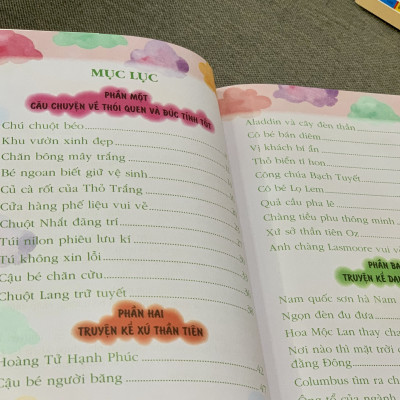 MỤC LỤC
PHẦN MỘT
CÂU CHUYỆN VỀ THÓI QUEN VÀ ĐỨC TÍNH TỐT
Chú chuột béo
Khu vườn xinh đẹp
Chăn bông mây trắng
Bé ngoan biết giữ vệ sinh
Củ cà rốt của Thỏ Trắng
Cửa hàng phế liệu vui vẻ
Chuột Nhắt đãng trí
Túi nilon phiêu lưu kí
Tú không xin lỗi
Cậu bé chăn cừu
Chuột Lang trữ tuyết
PHẦN HAI
TRUYỆN KỂ XỨ THẦN TIÊN
Hoàng Tử Hạnh Phúc
Cậu bé người băng
Aladdin và cây đèn thần
Cô bé bán diêm
Vị khách bí ẩn
Thỏ biển tí hon
Công chúa Bạch Tuyết
Cô bé Lọ Lem
Quả cầu pha lê
Chàng tiều phu thông minh
Xứ sở thần tiên Oz
Anh chàng Lasmoore vui vẻ
PHẦN BA
TRUYỆN KỂ
Nam quốc sơn hà Nam
Ngọn đèn đu đưa
Hoa Mộc Lan thay
Nơi nào thì mặt trời
đằng Đông
Columbus tìm ra
Ông tổ của ngành